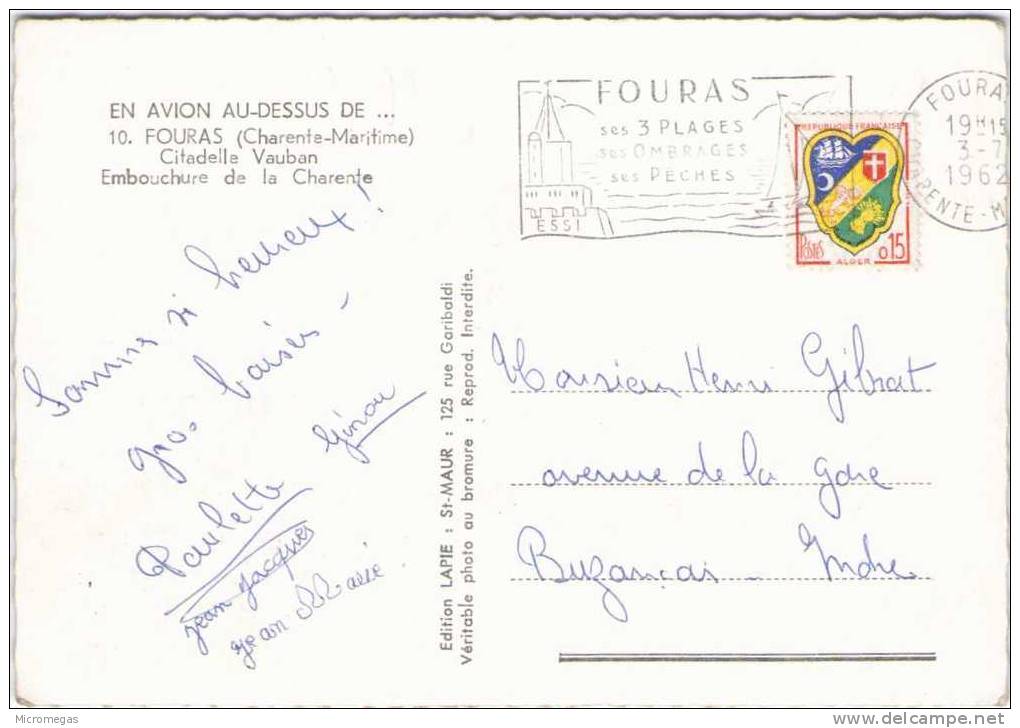 EN AVION AU-DESSUS DE ...
10. FOURAS (Charente-Maritime)
Citadelle Vauban
Embouchure de la Charente
Sommes si heureux !
gros baisers -
Paulette
jean jacques
jean Marie
FOURAS
ses 3 PLAGES
ses OMBRAGES
ses PÊCHES
ESSI
FOURA
19H15
3-7
1962
RENTE-M
REPUBLIQUE FRANÇAISE
POSTES
0,15
ALGER
Edition LAPIE : St-MAUR : 125 rue Garibaldi
Véritable photo au bromure : Reprod. Interdite.
Monsieur Henri Gibrat
avenue de la gare
Buzançais - Indre
Micromegas
www.delcampe.net